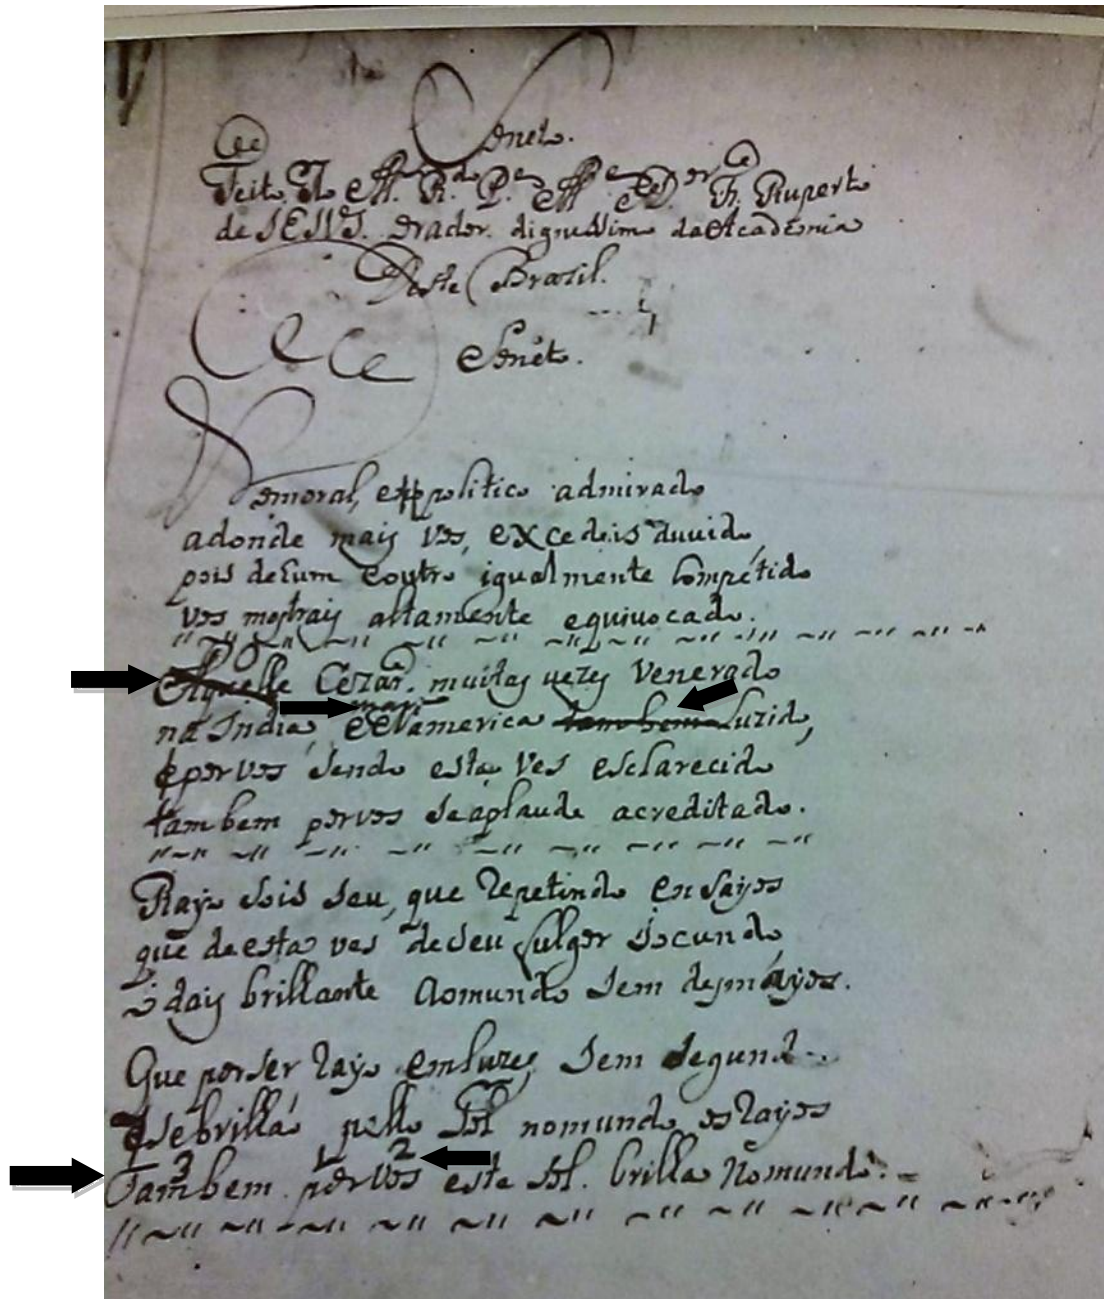 Soneto.
Feito Ao M. R. P. M. e D.or Fr. Ruperto
de JESUS. orador. dignissimo da Academia
Deste Brazil.
Soneto.
No moral, e politico admirado
adonde mais vos, excedeis duuido,
pois de hum eoutro igualmente Competido
vos mostrais altamente equiuocado.
O
Aquelle Cezar. muitas vezes Venerado
mais
na India, e America tambem Luzido,
e por vos sendo esta ves esclarecido
tambem por vos se aplaude acreditado.
Rayo sois seu, que repetindo ensayos
que de esta ves de seu fulgor jocundo,
o dais brillante ao mundo sem desmáyos.
Que por ser rayo em luzes, sem segundo
e se brilla pello Sol no mundo os rayos
3 1 2
Tambem por vos este Sol. brilla no mundo.